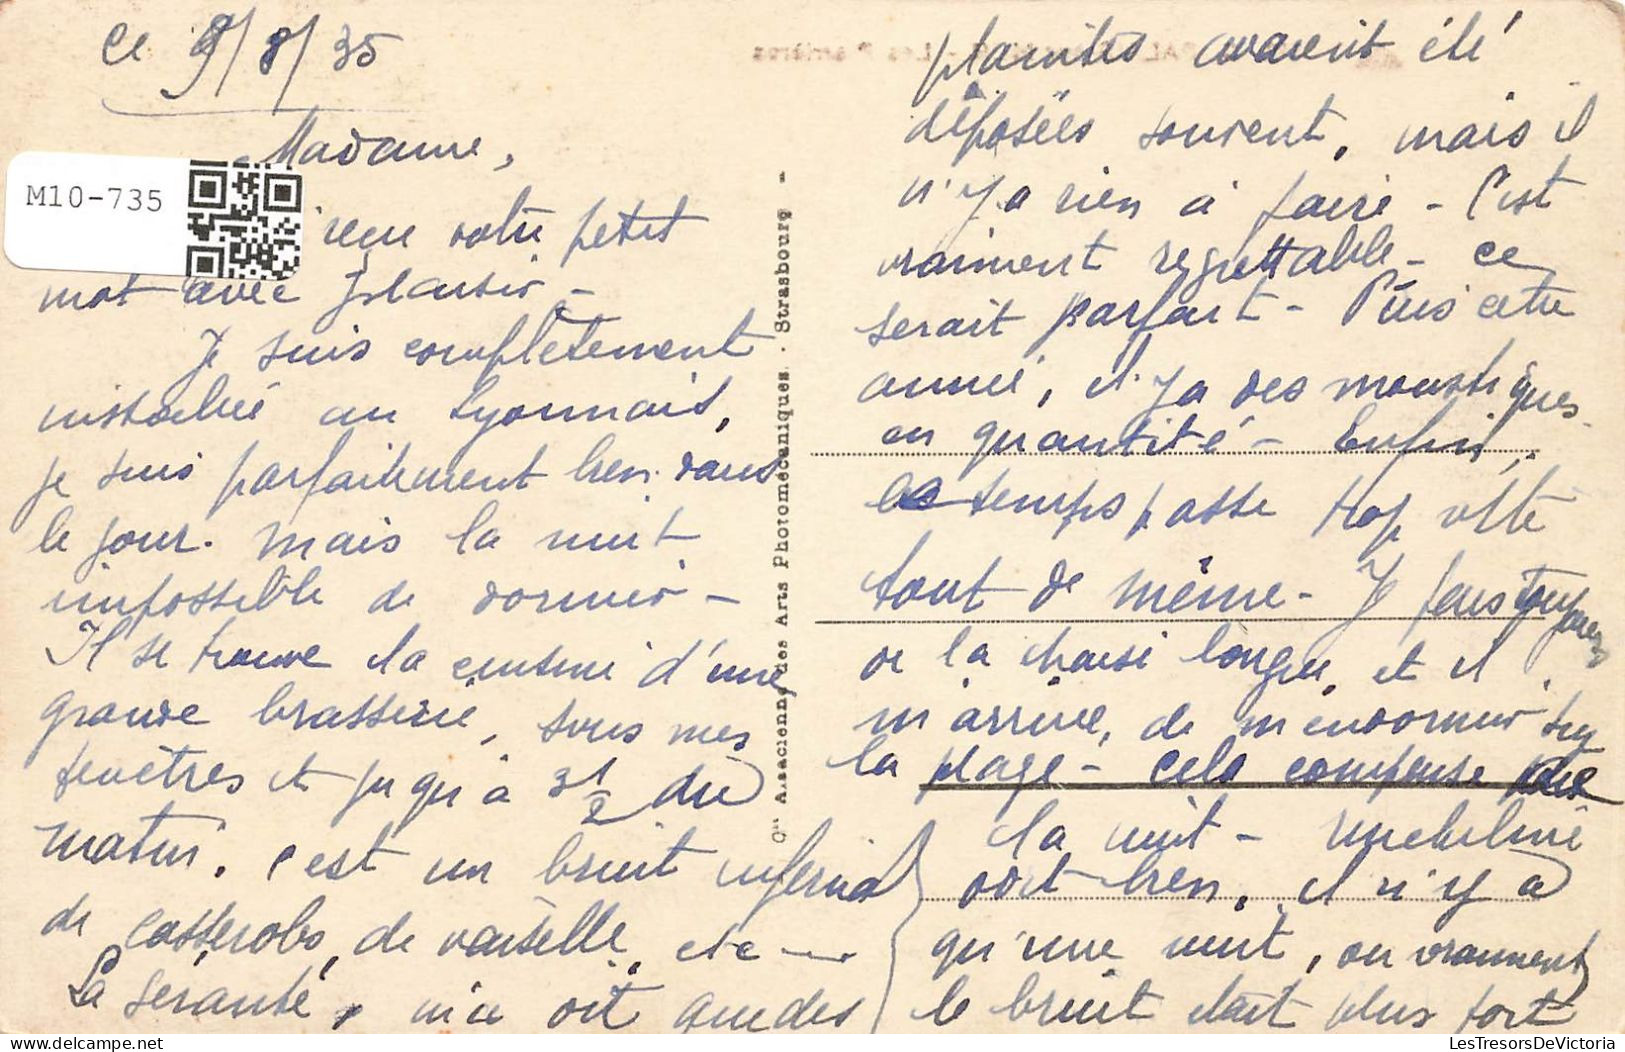 Ce 9/8/35
Madame,
M10-735
reçu votre petit
mot avec plaisir -
Je suis complètement
installée au Lyonnais,
je suis parfaitement bien dans
le jour. Mais la nuit
impossible de dormir -
Il se trouve la cuisine d'une
grande brasserie, sous mes
fenêtres et jusqu'à 3h 1/2 du
matin. C'est un bruit infernal
de casseroles, de vaisselle, etc —
La gérante, m'a dit que des
plaintes avaient été
déposées souvent, mais il
n'y a rien à faire - C'est
vraiment regrettable - ce
serait parfait - Puis cette
année, il y a des moustiques
en quantité - Enfin,
le temps passe trop vite
tout de même - Je fais toujours
de la chaise longue, et il
m'arrive, de m'endormir sur
la plage - Cela compense
la nuit - Micheline
dort bien, il n'y a
qu'une nuit, où vraiment
le bruit était plus fort
Cie Alsacienne des Arts Photomécaniques. - Strasbourg -
LesTresorsDeVictoria